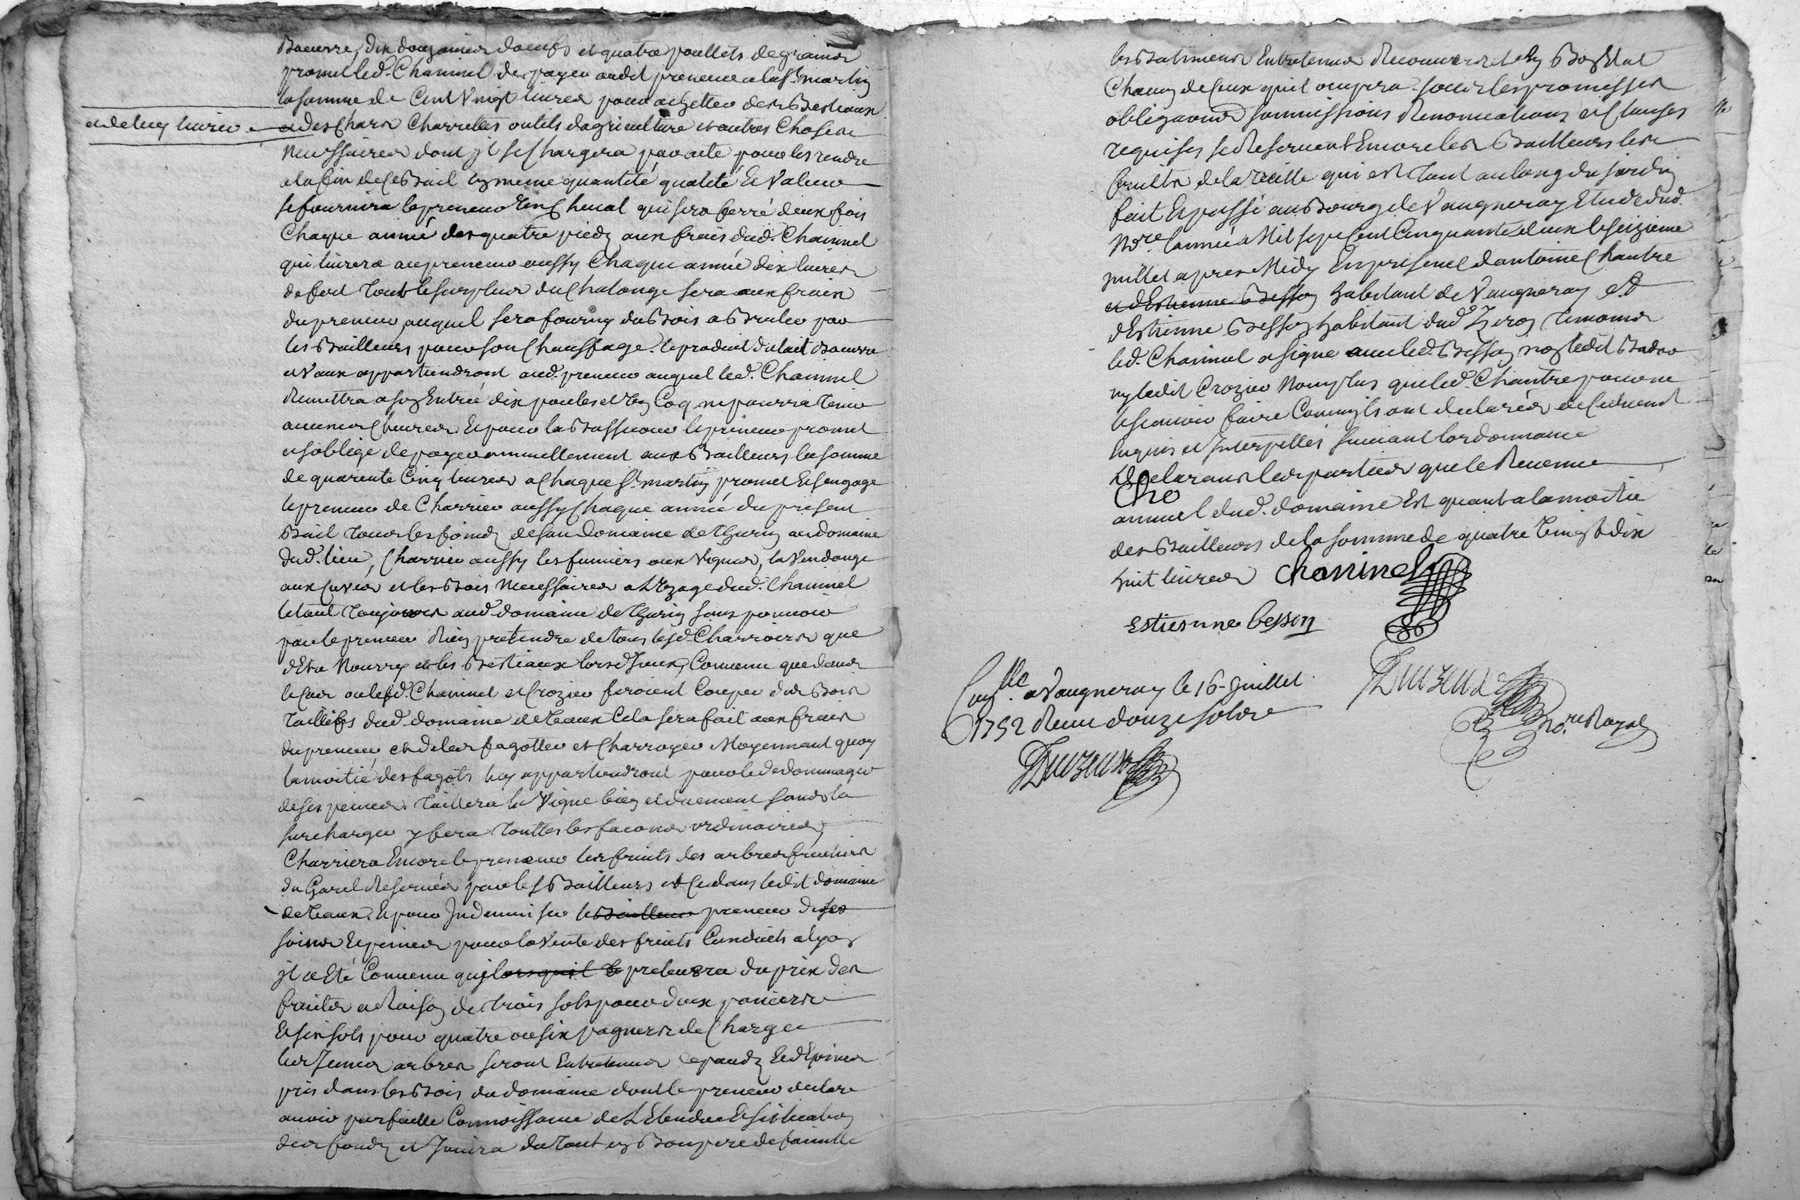 Bœurre, dix douzaines dœufs et quatre poullets de graines
promet led. Chaninel de payer audit preneur a la St. martin
la somme de Cent Vingt livres pour achetter des Bestiaux
et de cinq livres
et des Chars Charrettes outils dagriculture et autres Choses
Necessaires dont yl se Chargera par acte pour les rendre
a la fin de ce Bail en meme quantité qualité Et Valeur
se fournira le preneur Un Cheval qui sera ferré deux fois
Chaque année des quatre pieds aux frais dud. Chaninel
qui livrera au preneur aussy Chaque année dix livres
de fert tout le surplus du Chalange sera aux fraix
du preneur auquel sera fourny du Bois a Bruler par
les Bailleurs pour son Chauffage. le produit du lait Bœurre
et Vaux appartiendront aud. preneur auquel led. Chaninel
Remettra a son Entrée dix poules et Un Coq ne pourra tenir
aucunes Chevres. Et pour la Basseçour le preneur promet
et soblige de payer annuellement aux Bailleurs la somme
de quarente Cinq livres a Chaque St. martin promet Et sengage
le preneur de Charrier aussy Chaque année du present
Bail tous les foins de son domaine de Thurin au domaine
dud. lieu, Charrier aussy les fumiers aux Vignes, la Vendange
aux Cuves et les Bois Necessaires a L'uzage dud. Chaninel
le tout toujours aud. domaine de Thurin sans pouvoir
par le preneur Rien pretendre de tous lesd. Charrois que
dEtre Nourry et les Bestiaux lors d'Iceux, Convenu que dans
le Cas ou lesd. Chaninel et Crozier feroient Couper des Bois
Taillifs dud. domaine de Vaux Cela sera fait aux fraix
du preneur et de les fagotter et Charroyer Moyennant quoy
la moitié des fagots luy appartiendront pour le dedommager
de ses peines. Taillera la Vigne bien et duement sans la
surcharger y fera touttes les facons ordinaires,
Charriera Encore le preneur les fruits des arbres fruitiers
du Garel Reservés par les Bailleurs et Ce dans ledit domaine
de Vaux. Et pour Indemniser le Bailleur preneur de ses
soins Et peines pour la Vente des fruits Conduits a Lyon
yl a Eté Convenu quil lorsquil le prelevera du prix des
fruits a Raison de trois sols pour deux paniers
Et six sols pour quatre ou six pagners de Charge
les Jeunes arbres seront Entretenus Et dEpines
pris dans les Bois du domaine dont le preneur declare
avoir parfaitte Connoissance de L'Etendue Et situation
des fonds et Jouira du tout en Bon pere de famille
les Batimens Entretenus Recouverts et En Bon Etat
Chacun de Ceux quil occupera. sous les promesses
obligations soumissions Renonciations et Clauses
requises se Reservent Encore les Bailleurs les
fruits de la treille qui est tout au long du Jardin
fait Et passé au Bourg de Vaugneray Etude dud.
Nore. lannée Mil sept Cent Cinquante deux le seizieme
Juillet apres Midy En presence dantoine Chantre
et dEstienne Besson habitant de Vaugneray et
dEstienne Besson habitant dud. Yzeron temoins
led. Chaninel a signe avec led. Besson non ledit
ny ledit Crozier Non plus que led. Chantre pour ne
le scavoir faire Comm'ils ont declarés de Ce duement
Enquis et Interpellés suivant lordonnance
Declarant les parties que le Revenue
Cho
annuel dud. domaine Est quant a la moitie
des Bailleurs de la somme de quatre Vingt dix
huit livres Chaninel
Estienne besson
Conlle. a Vaugneray le 16. Juillet
1752 Reçu douze sols
Nore. Royal